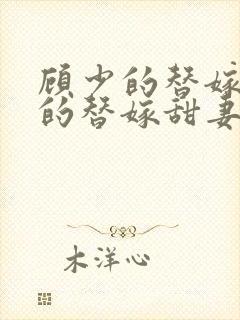 顾少的替嫁
的替嫁甜妻
木洋心